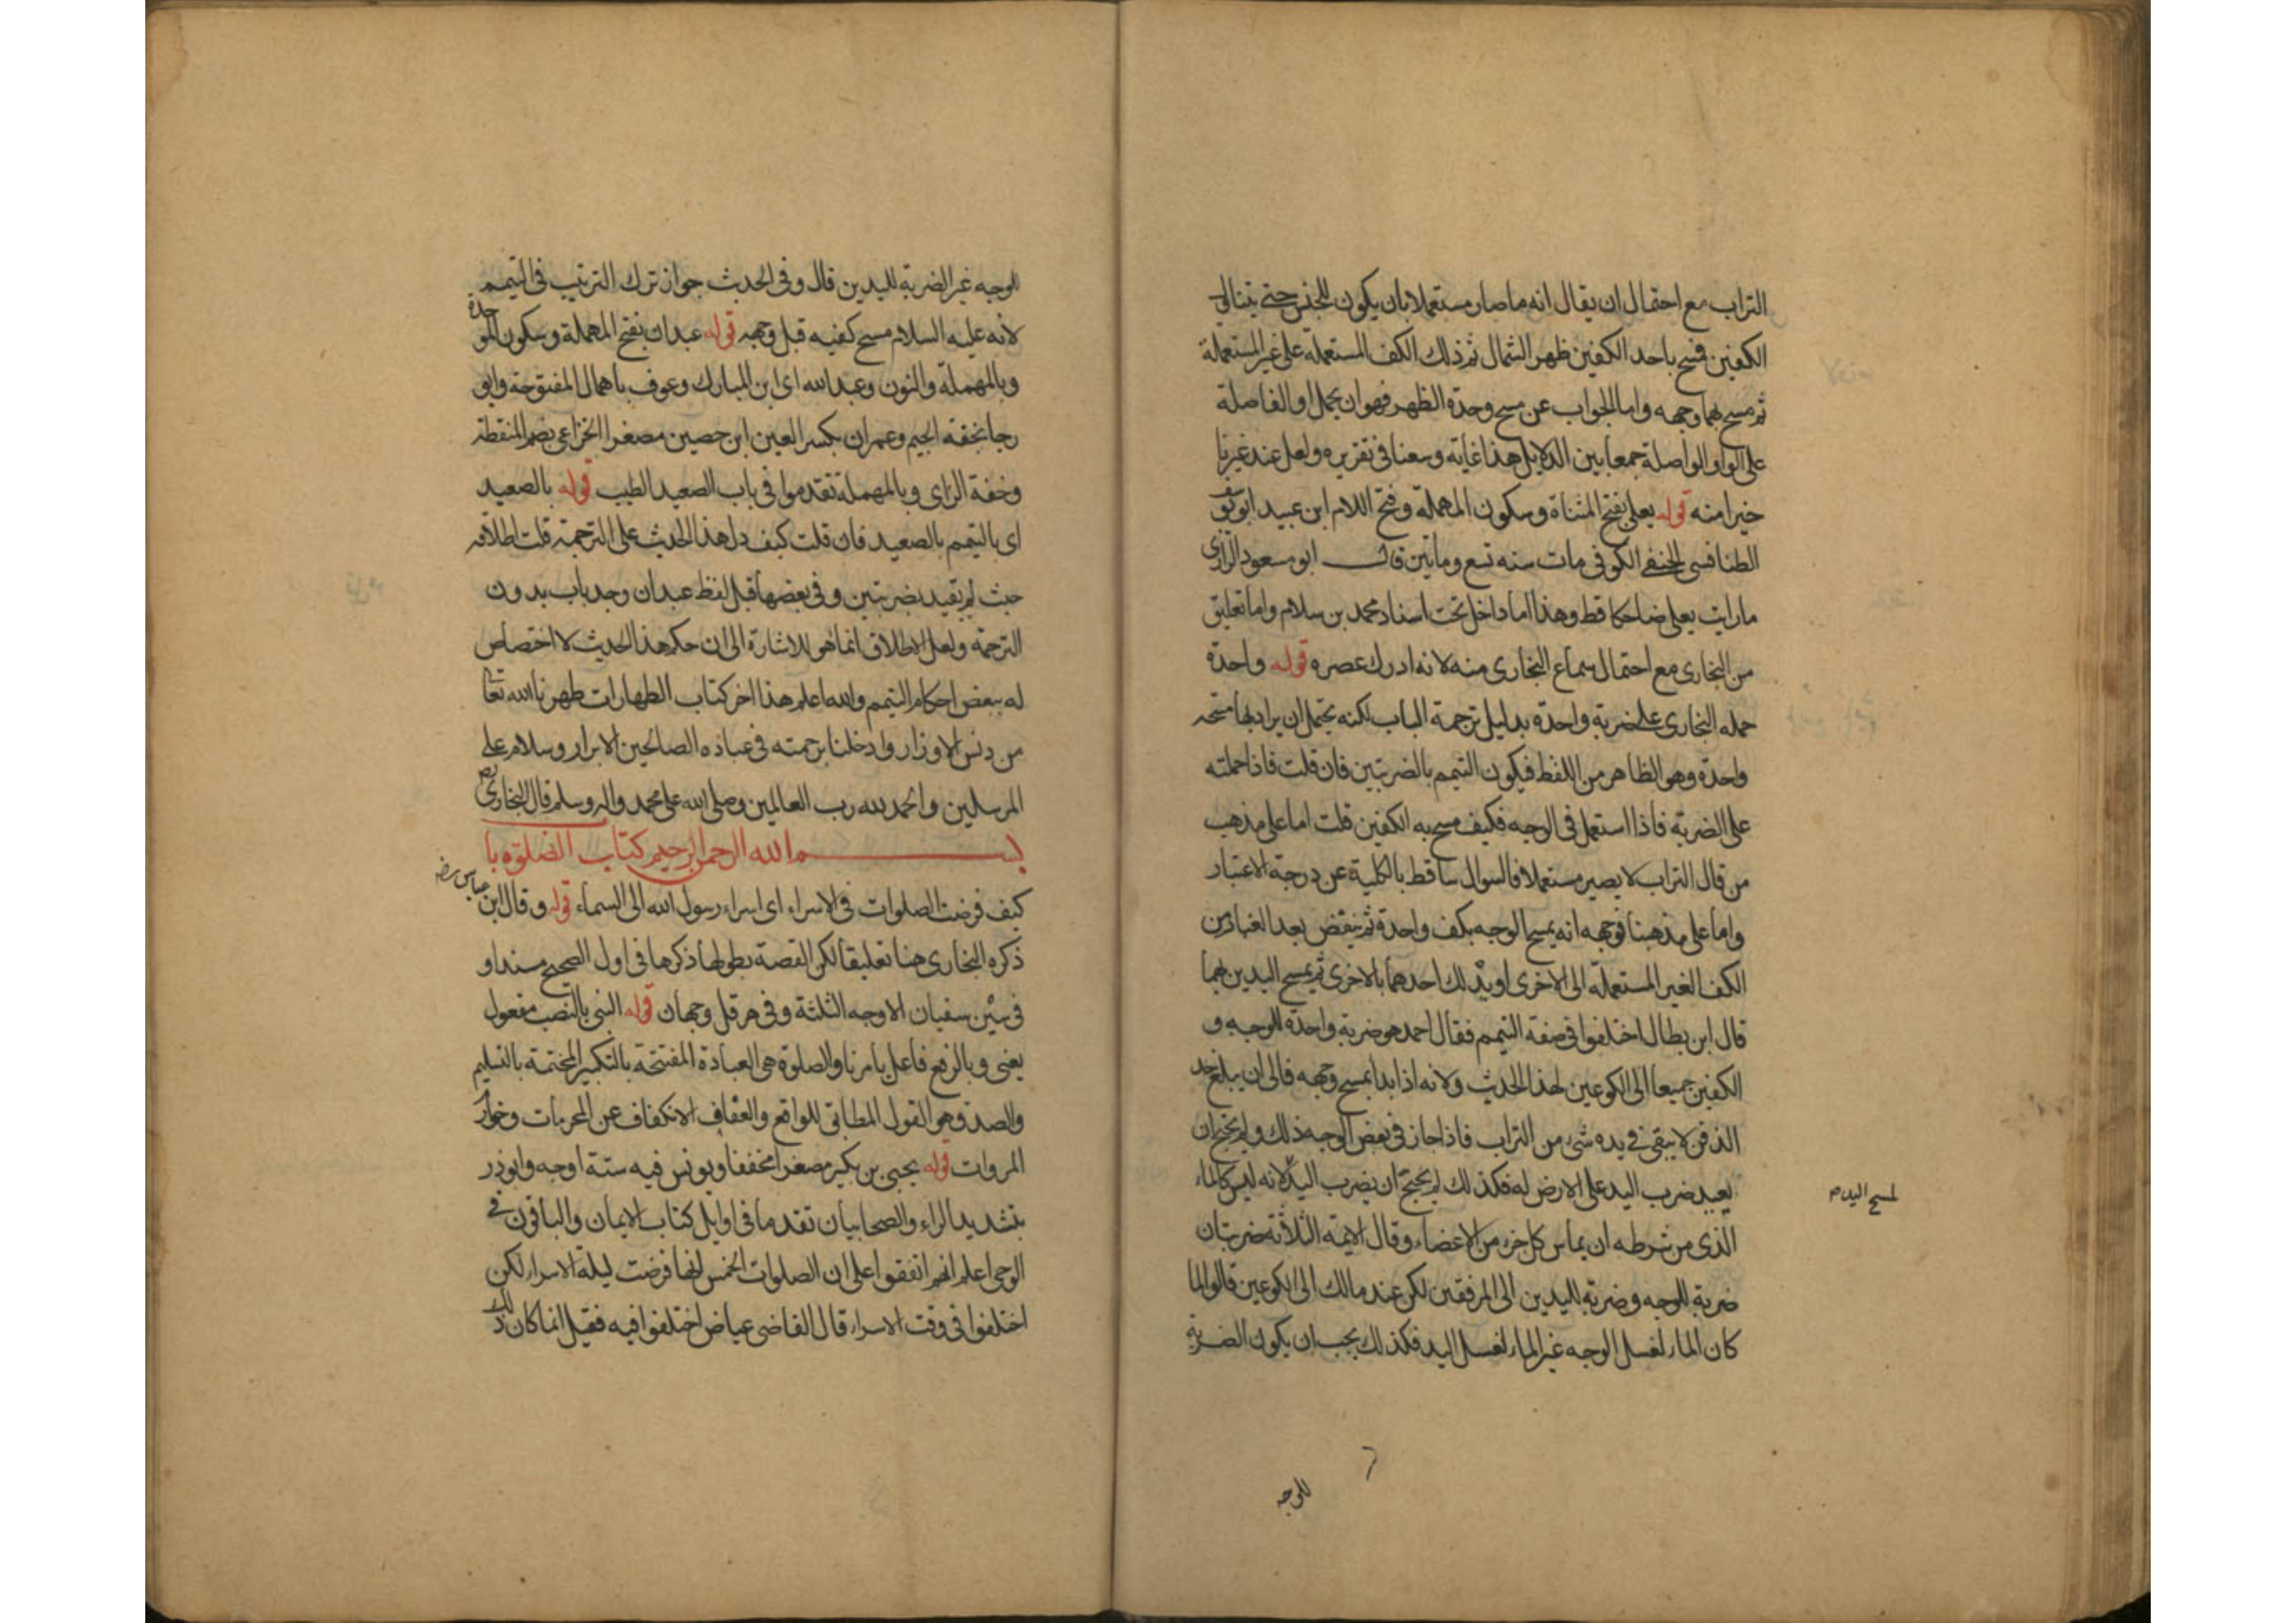 التراب مع احتمال ان يقال انه ما صار مستعملا بان يكون للجنس حتى يتناول
الكفين فمسح باحد الكفين ظهر الشمال ثم ذلك الكف المستعملة على غير المستعملة
ثم مسح بهما وجهه واما الجواب عن مسح وحدة الظهر فهو ان يحمل او الفاصلة
على الواو الواصلة جمعا بين الدلايل هذا غاية وسعنا في تقريره ولعل عند غيرنا
خيرا منه قوله يعلى بفتح المثناة وسكون المهملة وفتح اللام ابن عبيد ابو يوسف
الطنافسي الحنفي الكوفي مات سنه تسع ومأتين قال ابو مسعود الرازي
مارايت يعلى ضاحكا قط وهذا اما داخل تحت اسناد محمد بن سلام واما تعليق
من البخاري مع احتمال سماع البخاري منه لانه ادرك عصره قوله واحدة
حمله البخاري على ضربة واحدة بدليل ترجمة الباب لكنه يحتمل ان يراد بها مسحة
واحدة وهو الظاهر من اللفظ فيكون التيمم بالضربتين فان قلت فاذا حملته
على الضربة فاذا استعمل في الوجه فكيف مسح به الكفين قلت اما على مذهب
من قال التراب لا يصير مستعملا فالسوال ساقط بالكلية عن درجة الاعتبار
واما على مذهبنا فوجهه انه يمسح الوجه بكف واحدة ثم ينفض بعد الغبار من
الكف الغير المستعملة الى الاخرى او يدلك احدهما بالاخرى ثم يمسح اليدين بهما
قال ابن بطال اختلفوا في صفة التيمم فقال احمد هو ضربة واحدة للوجه و
الكفين جميعا الى الكوعين لهذا الحديث ولانه اذا بدا بمسح وجهه فالى ان يبلغ حد
الذقن لا يبقى في يده شيء من التراب فاذا جاز في بعض الوجه ذلك ولم يحتج ان
يعيد ضرب اليد على الارض له فكذلك لم يحتج ان يضرب اليد لانه ليس كالماء
لمسح اليد م
الذي من شرطه ان يماس كل جزء من الاعضاء وقال الايمة الثلاثة ضربتان
ضربة للوجه وضربة لليدين الى المرفقين لكن عند مالك الى الكوعين قالوا لما
كان الماء لغسل الوجه غير الماء لغسل اليد فكذلك يجب ان يكون الضربة
للوجه
للوجه غير الضربة لليدين قال وفي الحديث جواز ترك الترتيب في التيمم
لانه عليه السلام مسح كفيه قبل وجهه قوله عبدان بفتح المهملة وسكون الموحدة
وبالمهملة والنون وعبد الله اى ابن المبارك وعوف باهمال المفتوحة وابو
رجا بخفة الجيم وعمران بكسر العين ابن حصين مصغرا الخزاعي بضم المنقطة
وخفة الزاى وبالمهملة تقدموا في باب الصعيد الطيب قوله بالصعيد
اى بالتيمم بالصعيد فان قلت كيف دل هذا الحديث على الترجمة قلت اطلاقه
حيث لم يقيد بضربتين وفي بعضها قبل لفظ عبدان وجد باب بدون
الترجمة ولعل الاطلاق انما هو للاشارة الى ان حكم هذا الحديث لا اختصاص
له ببعض احكام التيمم والله اعلم هذا اخر كتاب الطهارات طهرنا الله تعا
من دنس الاوزار وادخلنا برحمته في عباده الصالحين الابرار وسلام على
المرسلين والحمد لله رب العالمين وصلى الله على محمد واله وسلم قال البخاري رض
بسم الله الرحمن الرحيم كتاب الصلوة با
كيف فرضت الصلوات في الاسراء اى اسراء رسول الله الى السماء قوله وقال ابن عباس رضه
ذكره البخاري هنا تعليقا لكن القصة بطولها ذكرها في اول الصحيح مسندا و
في سين سفيان الاوجه الثلثة وفي هرقل وجهان قوله النبي بالنصب مفعول
يعنى وبالرفع فاعل يامرنا والصلوة هي العبادة المفتتحة بالتكبير المختتمة بالتسليم
والصدق هو القول المطابق للواقع والعفاف الانكفاف عن المحرمات وخوارم
المروات قوله يحيى بن بكير مصغرا مخففا ويونس فيه ستة اوجه وابو ذر
بتشديد الراء والصحابيان تقدما في اوايل كتاب الايمان والباقون في
الوحي اعلم انهم اتفقوا على ان الصلوات الخمس انها فرضت ليلة الاسراء لكن
اختلفوا في وقت الاسراء قال القاضي عياض اختلفوا فيه فقيل انما كان ذلك